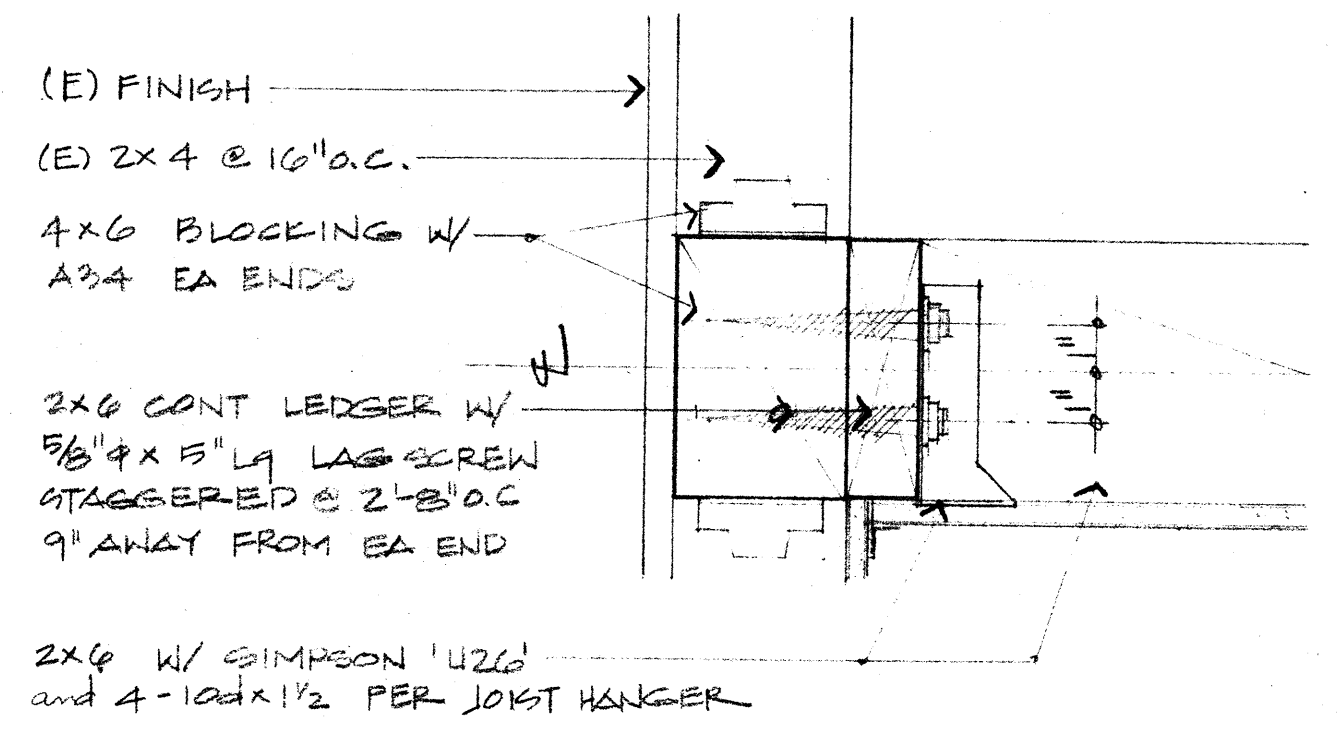 (E) FINISH
(E) 2x4 @ 16"O.C.
4x6 BLOCKING W/
A34 EA ENDS
2x6 CONT LEDGER W/
5/8"φ x 5" Lg LAG SCREW
STAGGERED @ 2'-8"O.C
9" AWAY FROM EA END
2x6 W/ SIMPSON 'U26'
and 4-10dx1½ PER JOIST HANGER